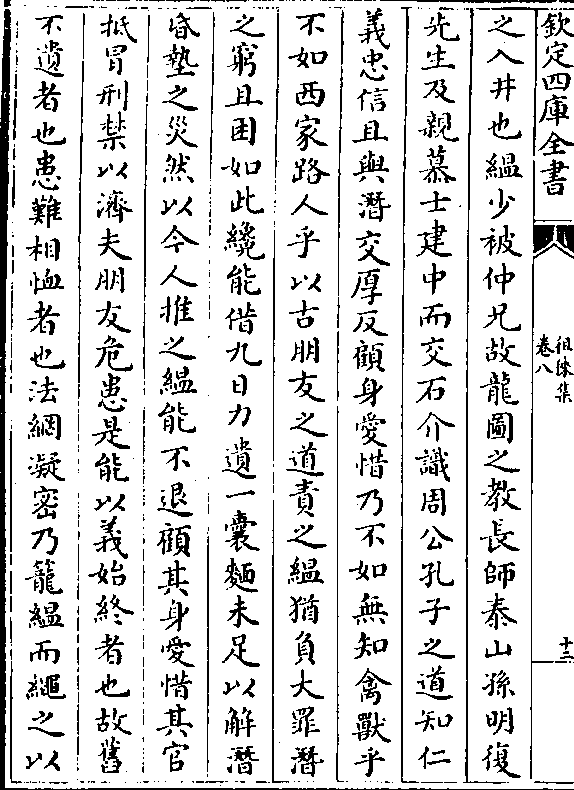 欽定四庫全書
徂徠集
卷八
十三
之入井也縕少被仲兄故龍圖之教長師泰山孫明復
先生及親慕士建中而交石介識周公孔子之道知仁
義忠信且與潛交厚反顧身愛惜乃不如無知禽獸乎
不如西家路人乎以古朋友之道責之縕猶負大罪潛
之窮且困如此纔能借九日力遺一囊麵未足以解潛
昏墊之災然以今人推之縕能不退顧其身愛惜其官
抵冒刑禁以濟夫朋友危患是能以義始終者也故舊
不遺者也患難相恤者也法網凝密乃籠縕而繩之以